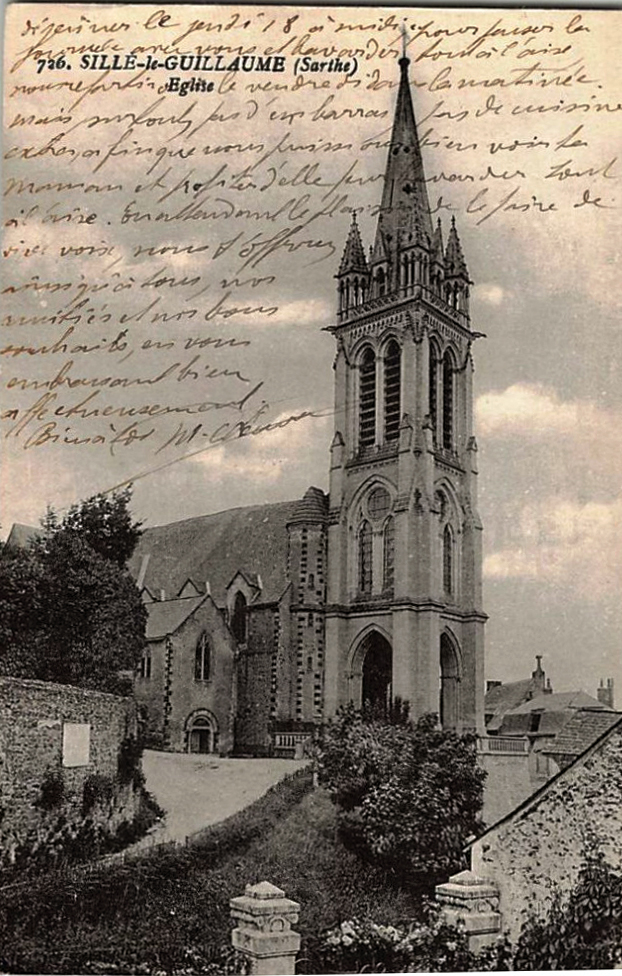 déjeuner le jeudi 18 à midi pour passer la
journée avec vous et bavarder tout à l'aise
726. SILLÉ-le-GUILLAUME (Sarthe)
Eglise
nous repartirons le vendredi dans la matinée.
mais surtout pas d'embarras, pas de cuisine
extra, afin que nous puissions bien voir ta
Maman et profiter d'elle pour bavarder tout
à l'aise. En attendant le plaisir de le faire de
vive voix, nous t'offrons
ainsi qu'à tous, nos
amitiés et nos bons
souhaits, en vous
embrassant bien
affectueusement.
Bientôt